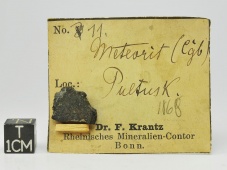 No. 11.
Meteorit (Cgb)
Loc.: Pultusk.
1868
Dr. F. Krantz
Rheinisches Mineralien-Contor
Bonn.
T
1CM